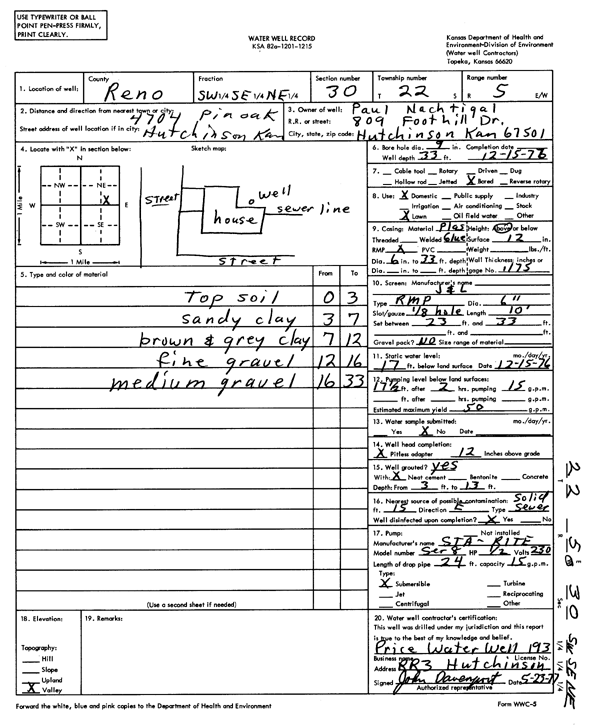 USE TYPEWRITER OR BALL
POINT PEN-PRESS FIRMLY,
PRINT CLEARLY.
WATER WELL RECORD
KSA 82a-1201-1215
Kansas Department of Health and
Environment-Division of Environment
(Water well Contractors)
Topeka, Kansas 66620
1. Location of well: County Reno Fraction SW 1/4 SE 1/4 NE 1/4 Section number 30 Township number T 22 S Range number R 5 E/W
2. Distance and direction from nearest town or city: 4704 Pin oak
Street address of well location if in city: Hutchinson Kan
3. Owner of well: Paul Nachtigal
R.R. or street: 809 Foothill Dr.
City, state, zip code: Hutchinson Kan 67501
4. Locate with "X" in section below:
N
NW NE
X
W E
SW SE
S
1 Mile
1 Mile
Sketch map:
STREET
well
sewer line
house
STREET
5. Type and color of material From To
Top soil 0 3
sandy clay 3 7
brown & grey clay 7 12
fine gravel 12 16
medium gravel 16 33
(Use a second sheet if needed)
6. Bore hole dia. 9 in. Completion date
Well depth 33 ft. 12-15-76
7. Cable tool Rotary Driven Dug
Hollow rod Jetted X Bored Reverse rotary
8. Use: X Domestic Public supply Industry
Irrigation Air conditioning Stock
X Lawn Oil field water Other
9. Casing: Material Plas Height: Above or below
Threaded Welded Glue Surface 12 in.
RMP X PVC Weight lbs./ft.
Dia. 6 in. to 33 ft. depth Wall Thickness: inches or
Dia. in. to ft. depth gage No. .175
10. Screen: Manufacturer's name
J & L
Type RMP Dia. 6"
Slot/gauze 1/8 hole Length 10'
Set between 23 ft. and 33 ft.
ft. and ft.
Gravel pack? NO Size range of material
11. Static water level: mo./day/yr.
17 ft. below land surface Date 12-15-76
12. Pumping level below land surfaces:
17½ ft. after 2 hrs. pumping 15 g.p.m.
ft. after hrs. pumping g.p.m.
Estimated maximum yield 50 g.p.m.
13. Water sample submitted: mo./day/yr.
Yes X No Date
14. Well head completion:
X Pitless adapter 12 Inches above grade
15. Well grouted? yes
With: X Neat cement Bentonite Concrete
Depth: From 3 ft. to 13 ft.
16. Nearest source of possible contamination: Solid
ft. 15 Direction E Type Sewer
Well disinfected upon completion? X Yes No
17. Pump: Not installed
Manufacturer's name STA-RITE
Model number Ser 8 HP 1/2 Volts 230
Length of drop pipe 24 ft. capacity 15 g.p.m.
Type:
X Submersible Turbine
Jet Reciprocating
Centrifugal Other
18. Elevation:
Topography:
Hill
Slope
Upland
X Valley
19. Remarks:
20. Water well contractor's certification:
This well was drilled under my jurisdiction and this report
is true to the best of my knowledge and belief.
Price Water Well 193
Business name License No.
Address RR3 Hutchinson
Signed John Davenport Date 5-23-77
Authorized representative
22 5 30 SW SE NE
T R Sec 1/4 1/4 1/4
Forward the white, blue and pink copies to the Department of Health and Environment
Form WWC-5